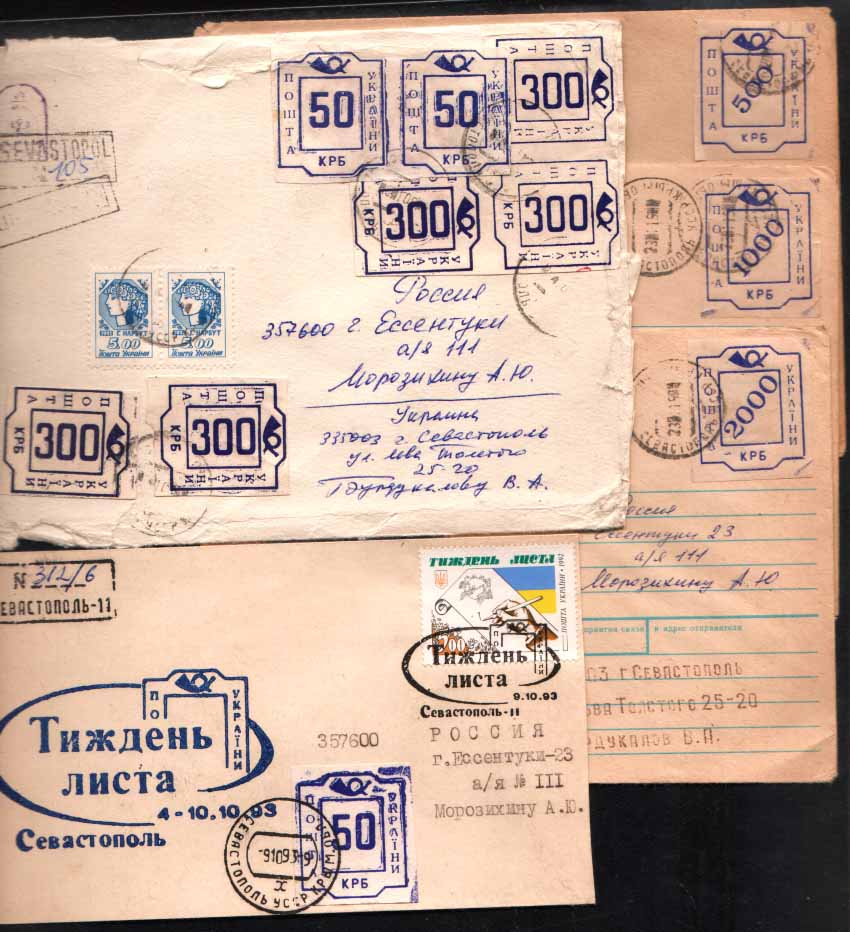 SEVASTOPOL
105
ПОШТА
УКРАЇНИ
50
КРБ
ПОШТА
УКРАЇНИ
50
КРБ
ПОШТА
300
ПОШТА
УКРАЇНИ
300
КРБ
ПОШТА
УКРАЇНИ
300
КРБ
5.00
Пошта України
5.00
Пошта України
ПОШТА
УКРАЇНИ
300
КРБ
ПОШТА
УКРАЇНИ
300
КРБ
Россия
357600 г. Ессентуки
а/я 111
Морозихину А.Ю.
Украина
335003 г. Севастополь
ул. Льва Толстого
25-20
Бурдукалову В. А.
ПОШТА
УКРАЇНИ
500
КРБ
УКРАЇНИ
1000
КРБ
УКРАЇНИ
2000
КРБ
Россия
Ессентуки 23
а/я 111
Морозихину А Ю
и адрес отправителя
03 г СЕВАСТОПОЛЬ
ва Толстого 25-20
РДУКАЛОВ В.П.
N 312/6
СЕВАСТОПОЛЬ-11
ТИЖДЕНЬ ЛИСТА
ПОШТА УКРАЇНИ • 1992
Тиждень
листа
9.10.93
Севастополь-11
ПО
УКРАЇНИ
Тиждень
листа
4-10.10.93
Севастополь
357600
РОССИЯ
г.Ессентуки-23
а/я № III
Морозихину А.Ю.
УКРАЇНИ
50
КРБ
СЕВАСТОПОЛЬ УССР КРЫМ.ОБЛ